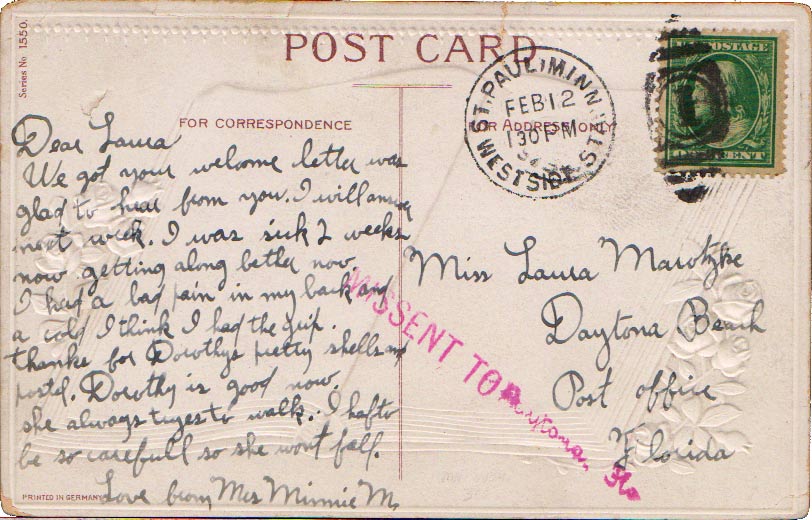 Series No 1550.
POST CARD
FOR CORRESPONDENCE
FOR ADDRESS ONLY
ST. PAUL, MINN.
FEB 12
130 PM
WEST SIDE STA.
U.S. POSTAGE
ONE CENT
Dear Laura
We got your welcome letter was
glad to hear from you. I will answer
next week. I was sick 2 weeks
now getting along better now
I had a bad pain in my back and
a cold I think I had the grip.
thanks for Dorothys pretty shells and
postd. Dorothy is good now.
she always tryes to walk. I hafto
be so carefull so she wont fall.
Love from Mrs Minnie M.
Miss Laura Marotzke
Daytona Beach
Post office
Florida
MISSENT TO
Daytona, Fla
PRINTED IN GERMANY